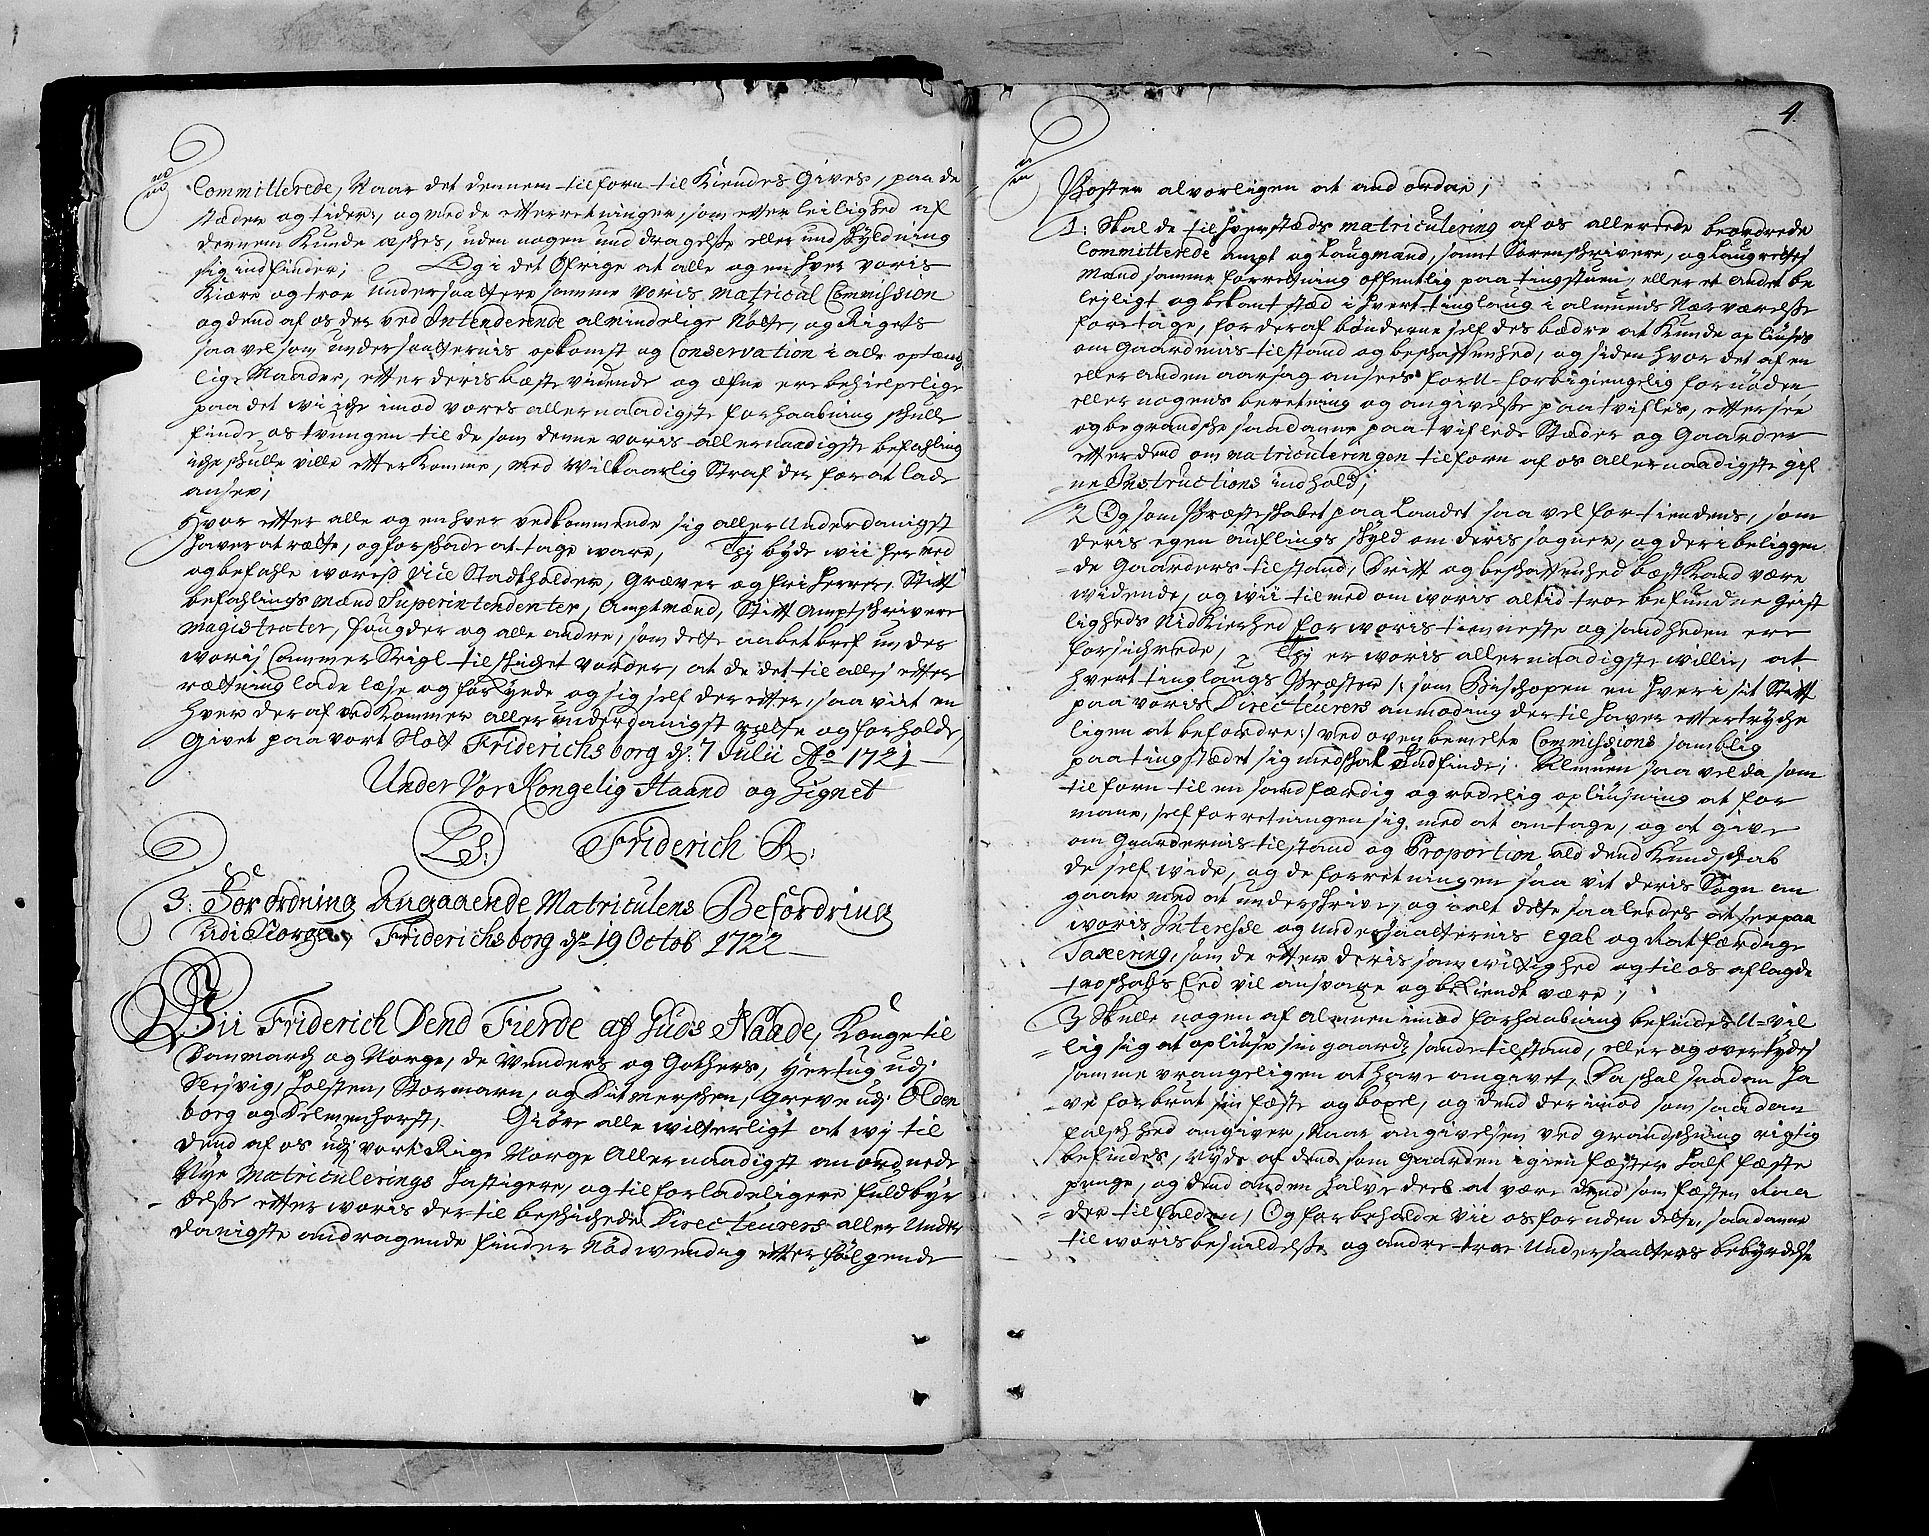 Committerede, Naar det dennem tilforn til Kiendes Gives, paa de
stæder og tider, og med de etterretninger, som etter leilighed af
dennem Kunde æsches, uden nogen und dragelsse eller undskyldning
sig indfinder; Og i det Øfrige at alle og en hver voris
Kiære og troe Undersaattere samme voris Matricul Commission
og dend af os der ved Intenderende almindelige Nøtte, og Rigets
saa vel som undersaatternis opkomst og Conservation i alle optænk
lige Maader, etter deris beste vidende og æfne ere behielpelige
paa det wi iche imod vores allernaadigste forhaabning skulle
finde os tvungen til de som denne voris allernaadigste befahling
iche skulle ville etter Komme, med Wilkaarlig Straf der for at lade
ansee;
Hvor etter alle og en hver vedkommende sig aller Underdanigst
haver at rætte, og for schade at tage ware, Thj byde wii her med
og befahle woriss Vice Stadtholder, Græver og friHerrer, Stift
befahlings Mænd Superintendenter, Amptmænd, Stift Amptschrivere
Magistrater, fougder og alle andre, som dette aabet bref under
woris Cammer Seigl tilskichet vorder, at de det til alles etter
rætning lade læse og forkynde og sig self der etter, saa vit en
hver der af ved Kommer aller underdanigst rætte og forholde,
Givet paa vort Slot Friderichsborg d. 7 Julii Ao 1721
Under Vor Kongelig Haand og Signet
LS: Friderich R:
3: Forordning Angaaende Matriculens Befordring
udi Norge, Friderichsborg d 19 Octob 1722
Wii Friderich Dend Fierde af Guds Naade, Konge til
Danmarch og Norge, de Wenders og Gothers, Hertug udj
Slesvig, Holsten, Stormarn, og Ditmerschen, Greve udj Olden
borg og Delmenhorst, Giøre alle witterligt at wj til
dend af os udj vort Rige Norge Allernaadigst anordnede
Nye Matriculerings hastigere, og tilforladeligere fuldbyr
delsse etter woris der til beschichede Directeurers aller Under
danigste andragende finder Nødwendig etterfølgende
4.
Poster alvorligen at and ordne;
1: Skal de til hverstæds matriculering af os allerede beordrede
Committerede Ampt og Laugmand, samt Sorenschrivere, og Laugrettes
Mænd samme forretning offentlig paa tingstuen, eller et andet be
leyligt og bekant stæd i hvert tinglaug i almuens Nærværelsse
foretage, for der af bønderne self des bædre at Kunde opliuses
om Gaardenis tilstand og beschaffenhed, og siden hvor det af en
eller anden aarsag ansees for U-forbigiengelig fornøden,
eller nogens beretning og angivelsse paatvifles, ettersee
og begrandsche saadanne paatviflede Stæder og Gaarder
etter dend om matriculeringen tilforn af os Allernaadigste gif
ne Instructions indhold;
2 Og som Præsteskabet paa Landet saa vel for tiendens, som
deris egen auflings skyld om deris sogner, og der i beliggen
de Gaarders tilstand, Drift og beschaffenhed best Kand være
widende, og wii til med om woris altid troe befundne geist
ligheds Nidkierhed for woris tienneste og sandheden ere
forsichrede, Thj er woris allernaadigste willie, at
hvert tinglaugs Præster /: som Bischopen en hver i sit Stift
paa voris Directeurers anmoding der til haver ettertryche
ligen at befordre :/ ved oven bemelte Commissions samblig
paa tingstædet sig med skal Indfinde; Almuen saa vel da som
tilforn til en sandfærdig og redelig opliusning at for
mane, self forretningen sig med at antage, og at give
om Gaardernis tilstand og Proportion ald dend Kundskab
de self wide, og de forretningen saa vit deris Sogn an
gaar med at underschrive, og i alt dette saaledes at see paa
woris Interesse og undersaatternis egal og Ratfærdige
Taxering, som de etter deris samwittighed og til os aflagde
troschabs Eed vil ansvare og bekiendt være;
3 Skulle nogen af almuen imod forhaabning befindes U-vil
lig sig at opliuse sin gaards sande tilstand, eller og overtydes
samme vrangeligen at have angivet, Da schal saadan ha
ve forbrut sin fæste og boxel, og dend der imod som saadan
falschhed angiver, Naar angivelsen ved grandschning rigtig
befindes, Nyde af dend som gaarden igien fæster half fæste
penge, og dend anden halve deel at være dend som fæsten Raa
der tilfalden, Og forbeholde vii os foruden dette, saadanne
til woris besvildelsse og andre troe Undersaatters bebyrdelse